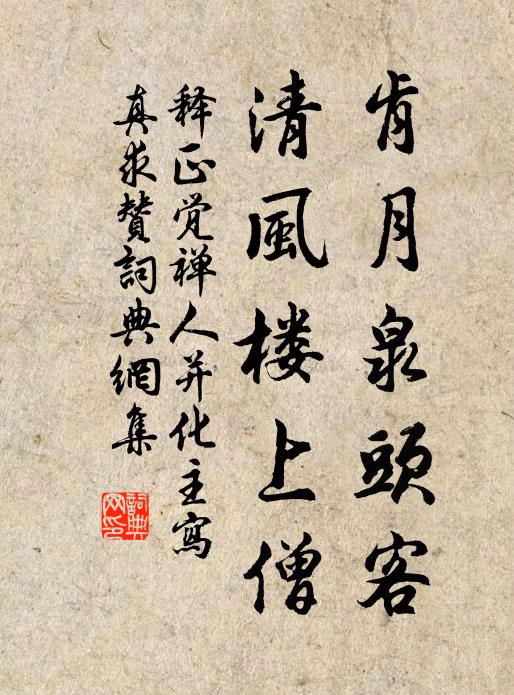 肯月泉頭客
清風楼上僧
释正覚禅人并化主寫
真求賛詞典網集
詞典網印